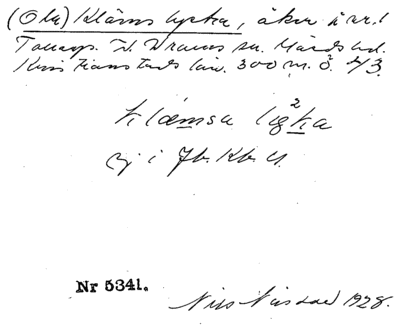 (Ola) Kläms lycka, åker å nr. 1
Tomarp. V. Vrams sn. Gärds hd.
Kristianstads län. 300 m. ö. 4/3.
klæmsa lykka
Ej i Jb. Kb. U.
Nr 5341.
1928.